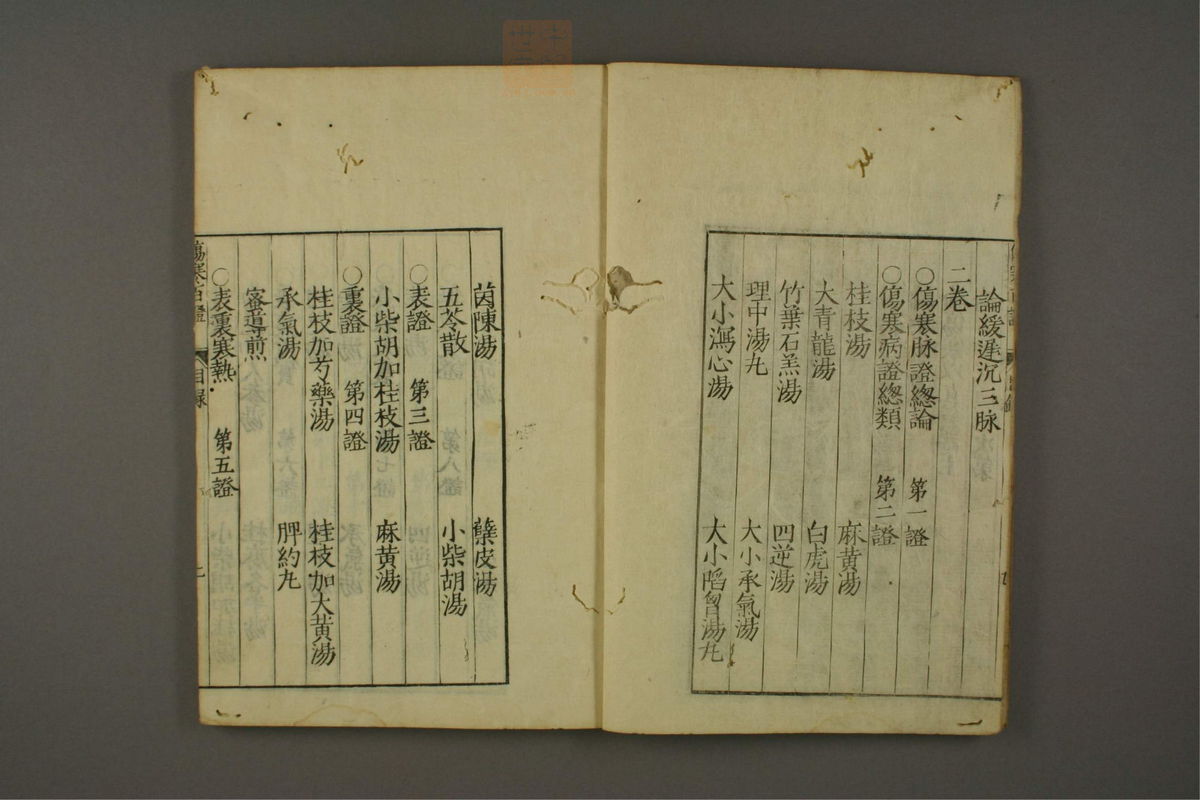 論緩遲沉三脉
二卷
○傷寒脉證總論 第一證
○傷寒病證總類 第二證
桂枝湯 麻黄湯
大青龍湯 白虎湯
竹葉石羔湯 四逆湯
理中湯丸 大小承氣湯
大小瀉心湯 大小陷胷湯丸
茵陳湯 蘗皮湯
五苓散 小柴胡湯
○表證 第三證
小柴胡加桂枝湯 麻黄湯
○裏證 第四證
桂枝加芍藥湯 桂枝加大黄湯
承氣湯 脾約丸
蜜導煎
○表裏寒熱 第五證
傷寒百證 目録